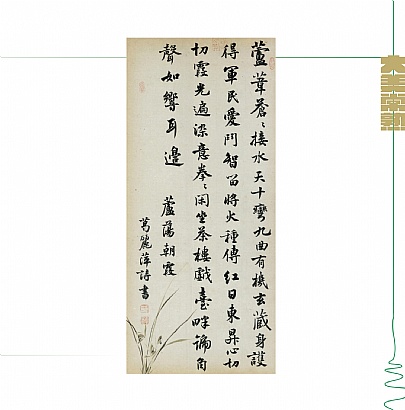 蘆葦蒼々接水天十彎九曲有機玄藏身護
得軍民愛鬥智留將火種傳紅日東昇心切
切霞光遍染意拳々閑坐茶樓戲臺畔角
聲如響耳邊 蘆蕩朝霞
葛麗萍詩書
大美常熟